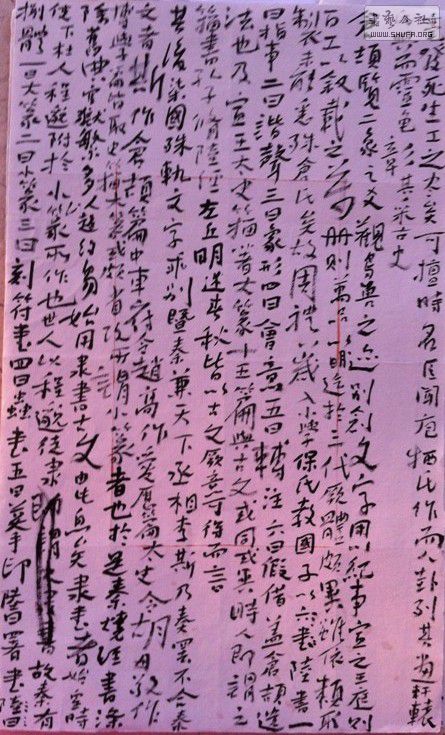 死生工之太矣可擅時名臣聞庖犧氏作而八卦列其畫軒轅
氏興而靈龜彰其采古史
倉頡覽二象之爻觀鳥獸之迹別創文字用以紀事宣之王庭則
百工以敘載之方冊則萬品以明迄於三代厥體頗異雖依類取
制未能悉殊倉氏矣故周禮八歲入小學保氏教國子以六書陸書一
曰指事二曰諧聲三曰象形四曰會意五曰轉注六曰假借蓋倉頡遺
法也及宣王太史籀著大篆十五篇與古文或同或異時人即謂之
籀書孔子修陸經左丘明述春秋皆以古文厥意可得而言
其後柒國殊軌文字乖別暨秦兼天下丞相李斯乃奏罷不合秦
文者斯作倉頡篇中車府令趙高作爰歷篇太史令胡母敬作
博學篇皆取史籀大篆或頗省改所謂小篆者也於是秦燒經書滌
除舊典官獄繁多人趨約易始用隸書古文由此息矣隸書者始皇時
使下杜人程邈附於小篆所作也世人以程邈徒隸即謂書故秦有
捌體一曰大篆二曰小篆三曰刻符書四曰蟲書五曰摹印陸曰署書陸曰
WWW.SHUFA.ORG